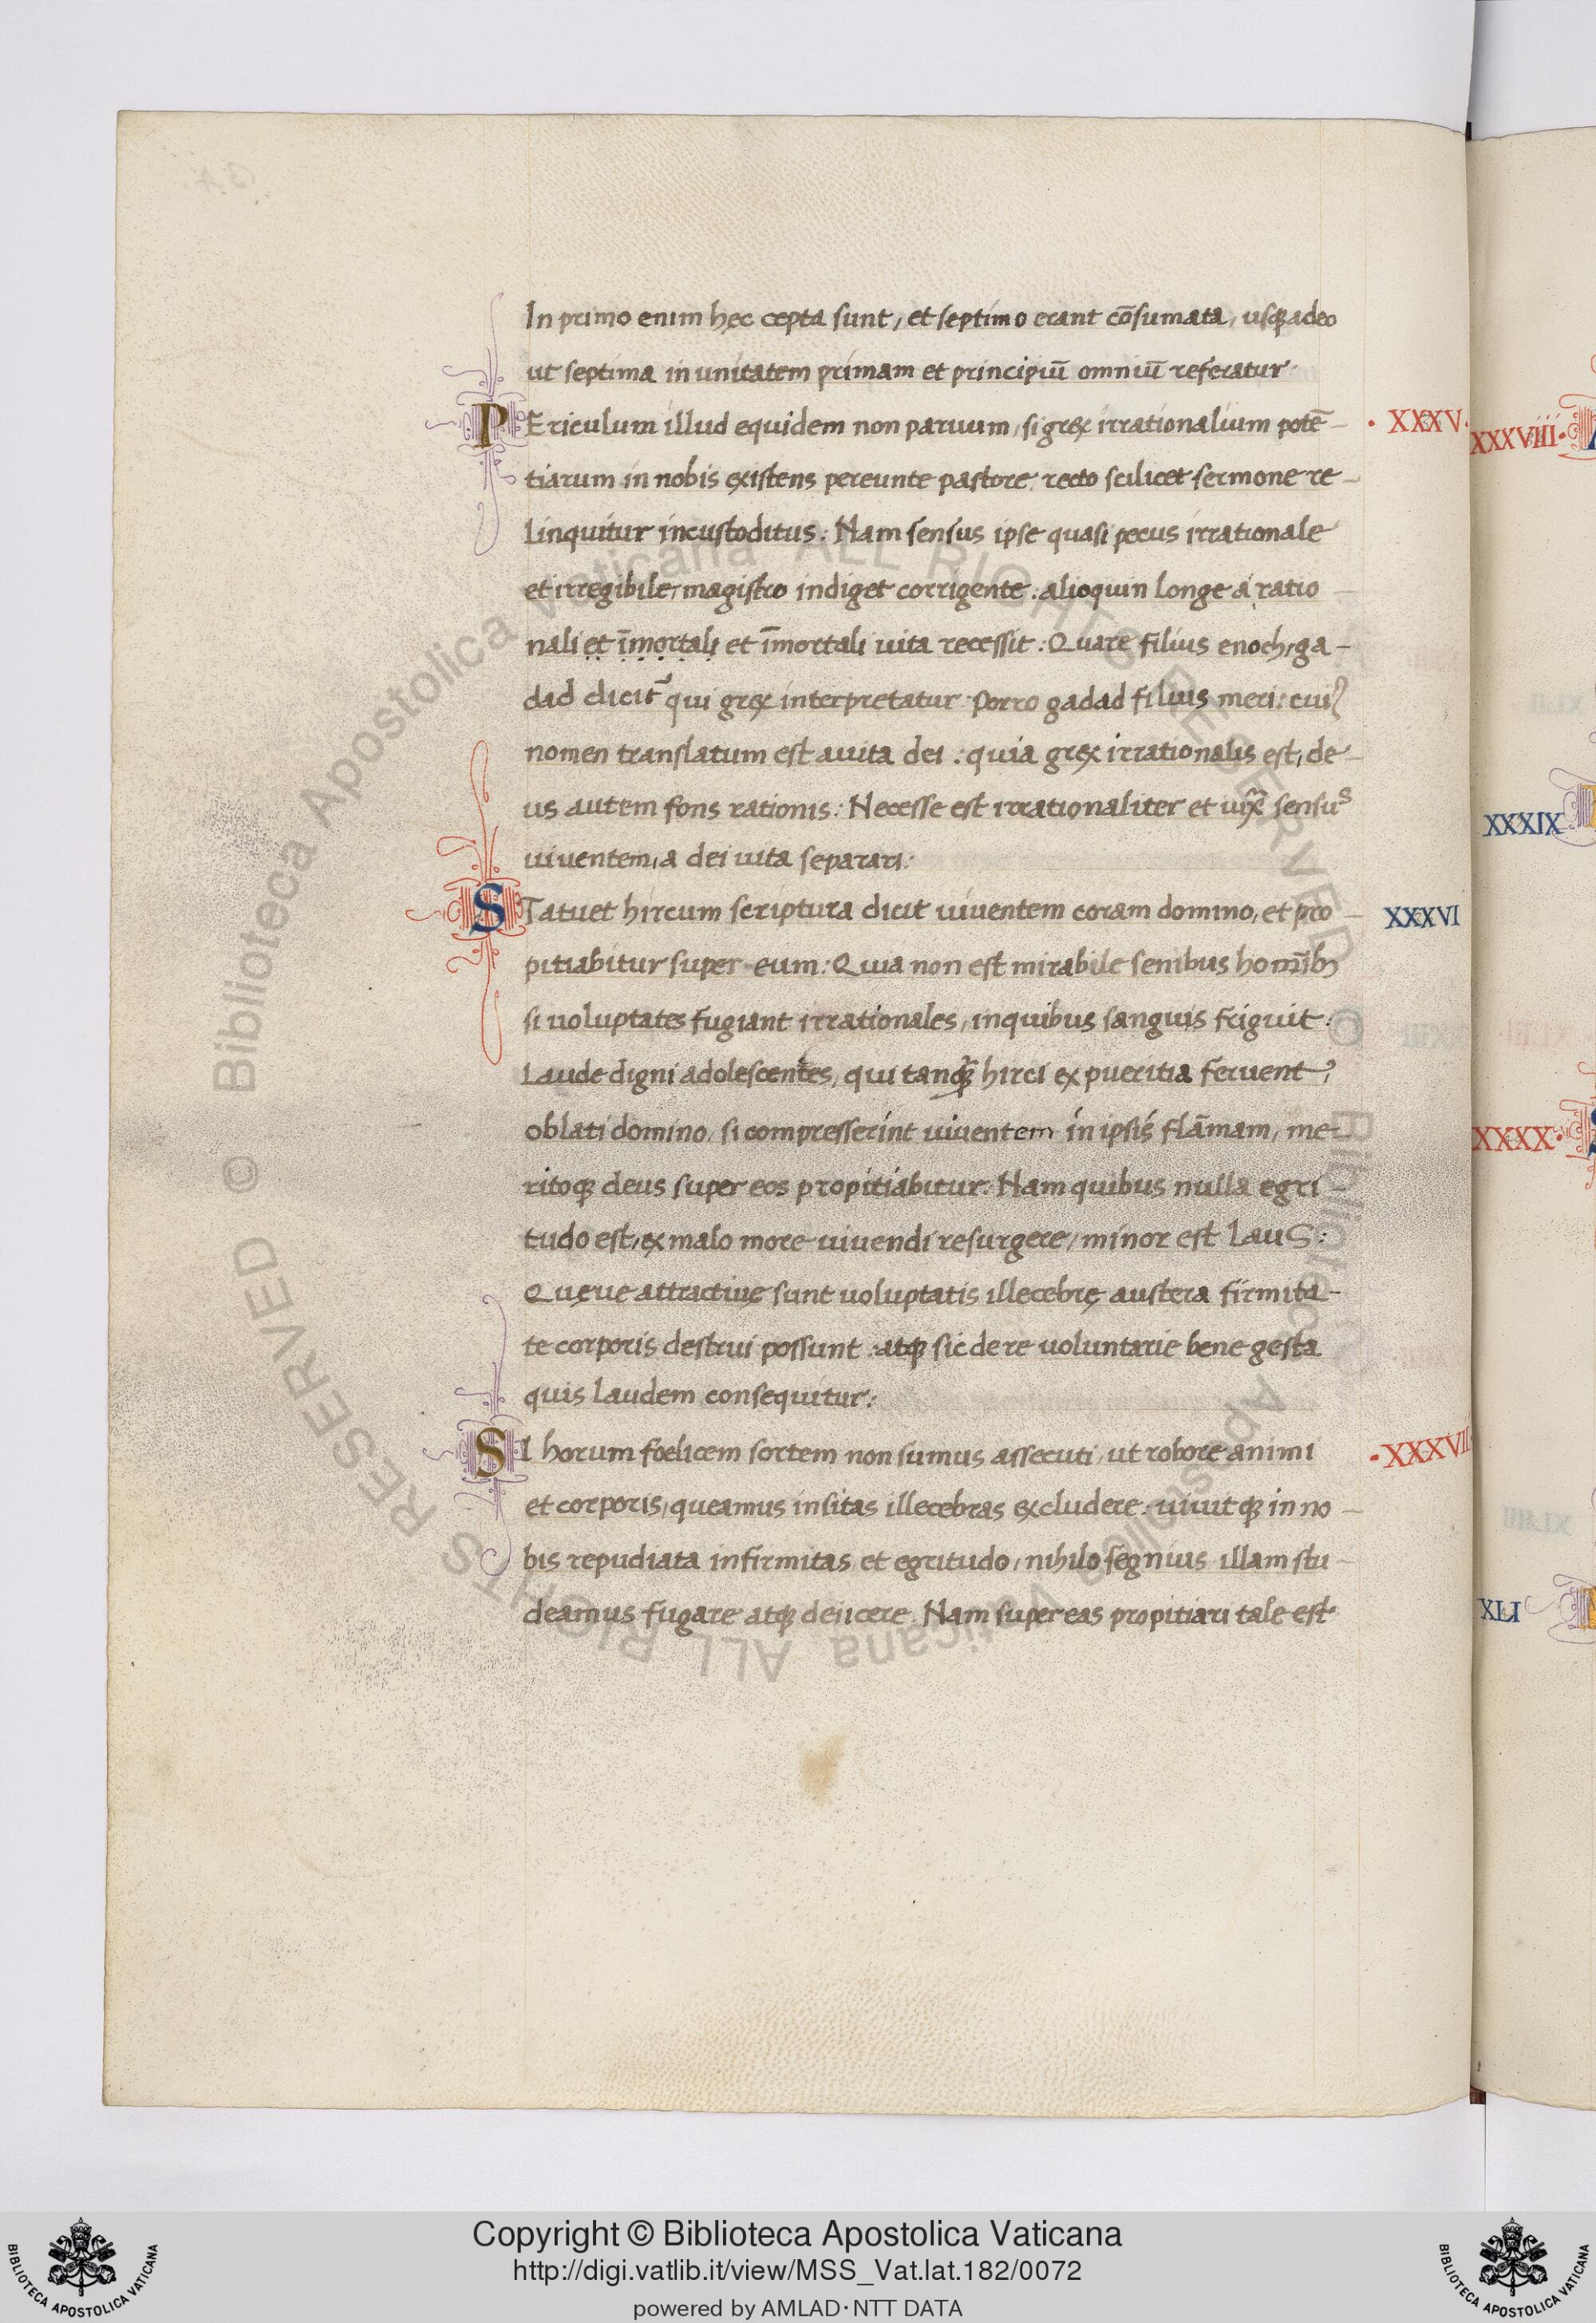 In primo enim hęc cepta sunt, et septimo erant cōsumata, usqꝫadeo
ut septima in unitatem primam et principiū omniū referatur·
PEriculum illud equidem non paruum, si grex irrationalium potē- · XXXV ·
tiarum in nobis existens pereunte pastore recto scilicet sermone re-
linquitur incustoditus: Nam sensus ipse quasi pecus irrationale
et irregibile, magistro indiget corrigente: alioquin longe á ratio
nali et īmortali et īmortali uita recessit: Quare filius enoch, ga-
dad dicit᷑ qui grex interpretatur· Porro gadad filius meri: cuiꝰ
nomen translatum est a uita dei: quia grex irrationalis est, de-
us autem fons rationis: Necesse est irrationaliter et uix sensuˢ
uiuentem, a dei uita separari:
STatuet hircum scriptura dicit uiuentem coram domino, et pro- XXXVI
pitiabitur super eum: Quia non est mirabile senibus homībꝫ
si uoluptates fugiant irrationales, in quibus sanguis friguit:
Laude digni adolescentes, qui tanqꝫ̄ hirci ex pueritia feruent,
oblati domino, si compresserint uiuentem in ipsis flāmam, me-
ritoqꝫ deus super eos propitiabitur: Nam quibus nulla egri-
tudo est, ex malo more uiuendi resurgere, minor est LauS:
Quęue attractiuę sunt uoluptatis illecebrę austera firmita-
te corporis destrui possunt: atqꝫ sic de re uoluntarie bene gesta
quis laudem consequitur:
SI horum foelicem sortem non sumus assecuti, ut robore animi · XXXVII
et corporis, queamus insitas illecebras excludere: uiuitqꝫ in no-
bis repudiata infirmitas et egritudo, nihilo segnius illam stu-
deamus fugare atqꝫ deiicere. Nam super eas propitiari tale est
XXXVIII·
XXXIX
XXXX·
XLI
© Biblioteca Apostolica Vaticana ALL RIGHTS RESERVED © Biblioteca Apostolica Vaticana ALL RIGHTS RESERVED
BIBLIOTECA APOSTOLICA VATICANA
Copyright © Biblioteca Apostolica Vaticana
http://digi.vatlib.it/view/MSS_Vat.lat.182/0072
powered by AMLAD·NTT DATA
BIBLIOTECA APOSTOLICA VATICANA